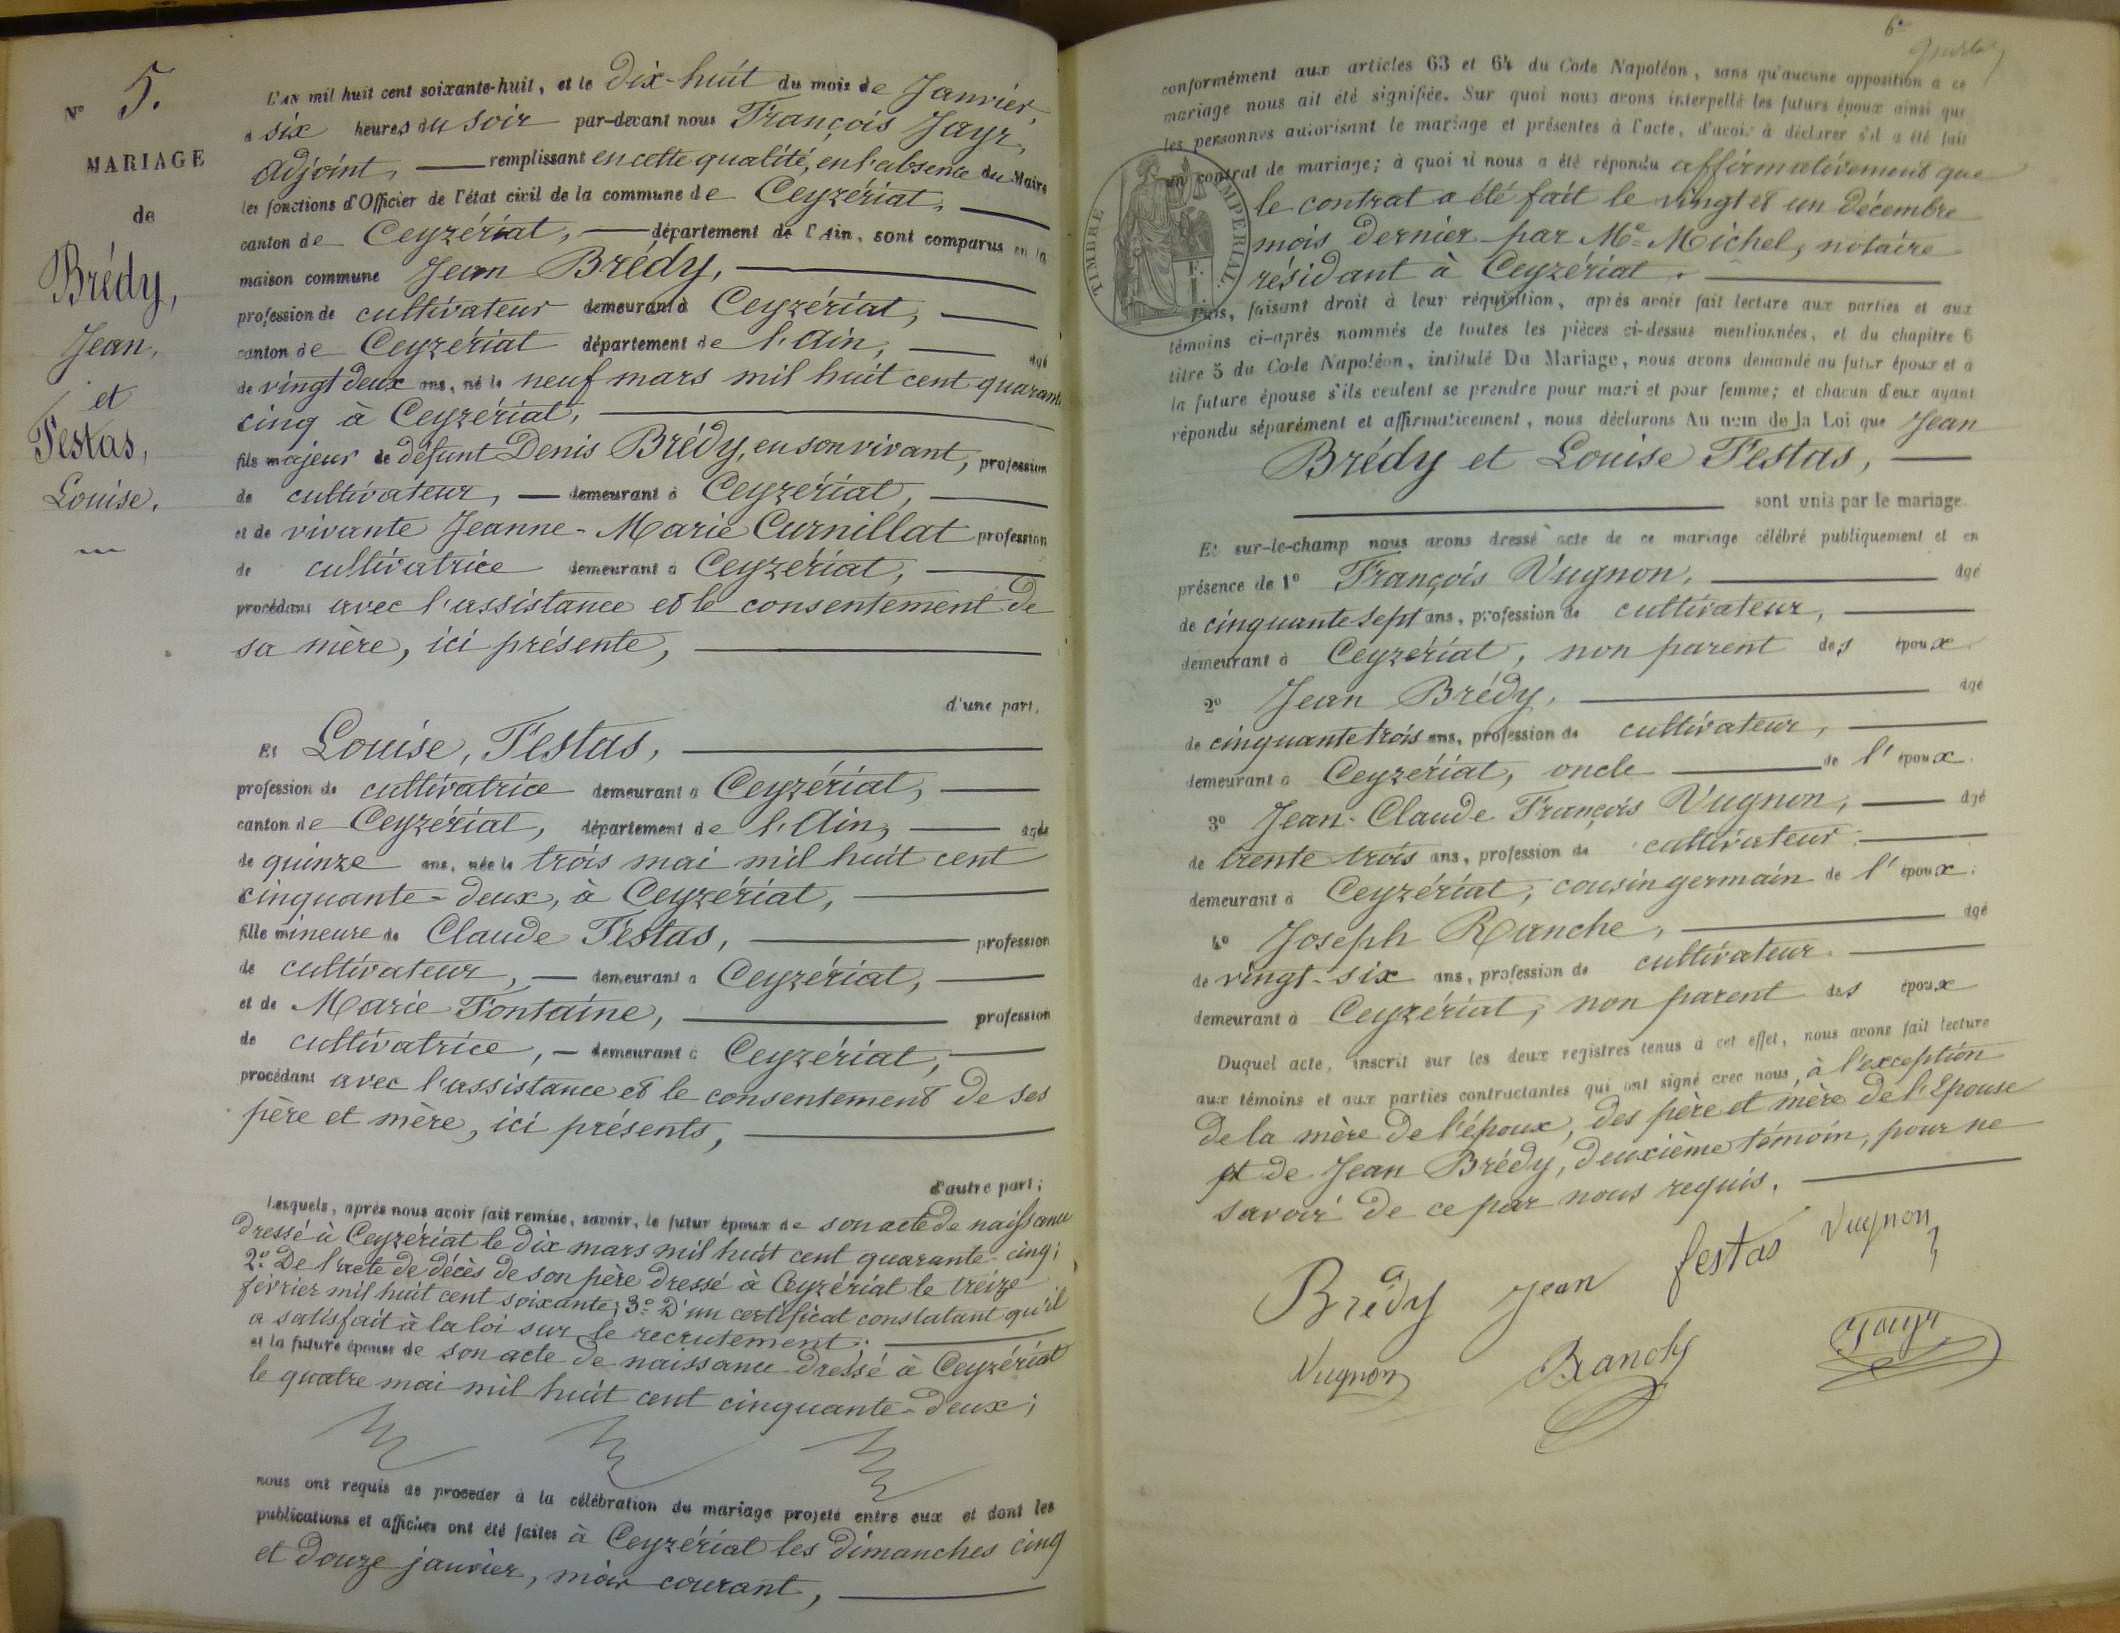 N° 5.
MARIAGE
de
Brédy,
Jean,
et
Festas,
Louise.
L'an mil huit cent soixante-huit, et le dix-huit du mois de Janvier,
à six heures du soir par-devant nous François Jayr,
adjoint, remplissant en cette qualité, en l'absence du Maire
les fonctions d'Officier de l'état civil de la commune de Ceyzériat,
canton de Ceyzériat, département de l'Ain, sont comparus en la
maison commune Jean Brédy,
profession de cultivateur demeurant à Ceyzériat,
canton de Ceyzériat département de l'Ain, âgé
de vingt deux ans, né le neuf mars mil huit cent quarante
cinq à Ceyzériat,
fils majeur de défunt Denis Brédy, en son vivant, profession
de cultivateur, demeurant à Ceyzériat,
et de vivante Jeanne-Marie Curnillat profession
de cultivatrice demeurant à Ceyzériat,
procédant avec l'assistance et le consentement de
sa mère, ici présente,
d'une part,
Et Louise, Festas,
profession de cultivatrice demeurant à Ceyzériat,
canton de Ceyzériat, département de l'Ain, âgée
de quinze ans, née le trois mai mil huit cent
cinquante-deux, à Ceyzériat,
fille mineure de Claude Festas, profession
de cultivateur, demeurant à Ceyzériat,
et de Marie Fontaine, profession
de cultivatrice, demeurant à Ceyzériat,
procédant avec l'assistance et le consentement de ses
père et mère, ici présents,
d'autre part;
Lesquels, après nous avoir fait remise, savoir, le futur époux de son acte de naissance
dressé à Ceyzériat le dix mars mil huit cent quarante-cinq;
2° De l'acte de décès de son père dressé à Ceyzériat le treize
février mil huit cent soixante; 3° D'un certificat constatant qu'il
a satisfait à la loi sur le recrutement;
et la future épouse de son acte de naissance dressé à Ceyzériat
le quatre mai mil huit cent cinquante-deux;
nous ont requis de procéder à la célébration du mariage projeté entre eux et dont les
publications et affiches ont été faites à Ceyzériat les dimanches cinq
et douze janvier, mois courant,
6e
conformément aux articles 63 et 64 du Code Napoléon, sans qu'aucune opposition à ce
mariage nous ait été signifiée. Sur quoi nous avons interpellé les futurs époux ainsi que
les personnes autorisant le mariage et présentes à l'acte, d'avoir à déclarer s'il a été fait
un contrat de mariage; à quoi il nous a été répondu affirmativement que
le contrat a été fait le vingt et un décembre
mois dernier par Me Michel, notaire
résidant à Ceyzériat.
TIMBRE IMPERIAL
Puis, faisant droit à leur réquisition, après avoir fait lecture aux parties et aux
témoins ci-après nommés de toutes les pièces ci-dessus mentionnées, et du chapitre 6
titre 5 du Code Napoléon, intitulé Du Mariage, nous avons demandé au futur époux et à
la future épouse s'ils veulent se prendre pour mari et pour femme; et chacun d'eux ayant
répondu séparément et affirmativement, nous déclarons Au nom de la Loi que Jean
Brédy et Louise Festas,
sont unis par le mariage.
Et sur-le-champ nous avons dressé acte de ce mariage célébré publiquement et en
présence de 1° François Vugnon, âgé
de cinquante sept ans, profession de cultivateur,
demeurant à Ceyzériat, non parent des époux.
2° Jean Brédy, âgé
de cinquante trois ans, profession de cultivateur,
demeurant à Ceyzériat, oncle de l'époux.
3° Jean-Claude François Vugnon, âgé
de trente trois ans, profession de cultivateur.
demeurant à Ceyzériat, cousin germain de l'époux.
4° Joseph Ranche, âgé
de vingt-six ans, profession de cultivateur.
demeurant à Ceyzériat, non parent des époux
Duquel acte, inscrit sur les deux registres tenus à cet effet, nous avons fait lecture
aux témoins et aux parties contractantes qui ont signé avec nous, à l'exception
de la mère de l'époux, des père et mère de l'Epouse
et de Jean Brédy, deuxième témoin, pour ne
savoir de ce par nous requis.
Brédy Jean festas Vugnon
Vugnon Ranch Jayr